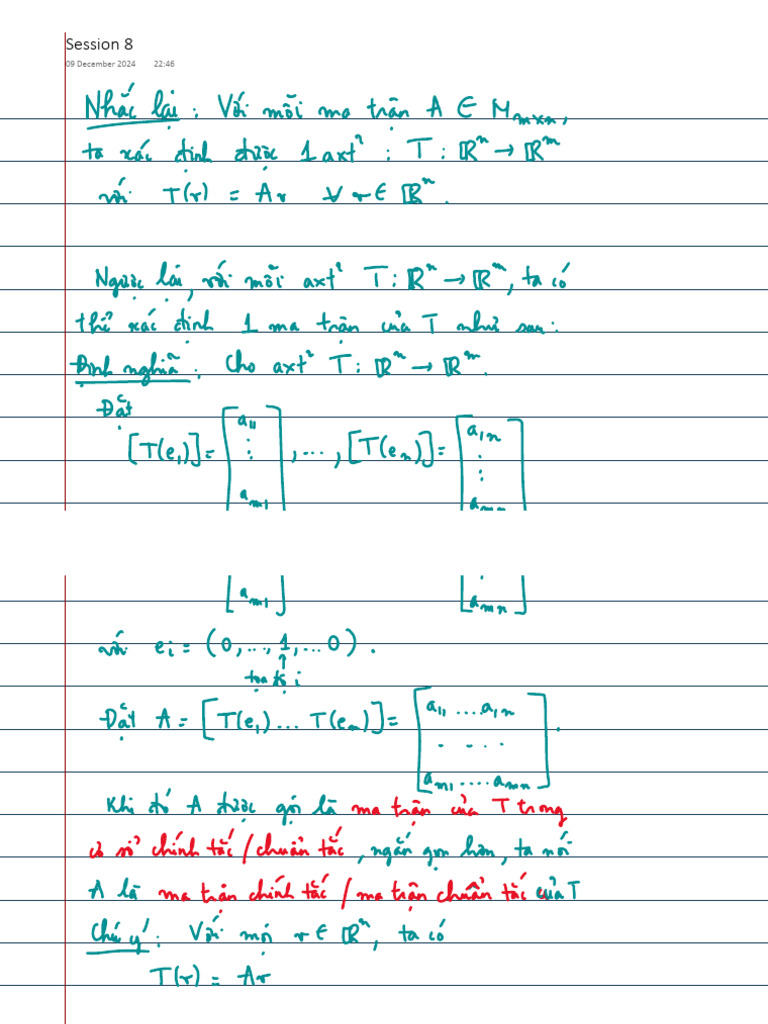 Session 8
09 December 2024 22:46
Nhắc lại : Với mỗi ma trận A ∈ M_{m×n},
ta xác định được 1 axtt : T : ℝⁿ → ℝᵐ
với T(v) = Av ∀ v ∈ ℝⁿ.
Ngược lại, với mỗi axtt T : ℝⁿ → ℝᵐ, ta có
thể xác định 1 ma trận của T như sau:
Định nghĩa : Cho axtt T : ℝⁿ → ℝᵐ.
Đặt
[T(e₁)] = [a₁₁ ⋮ a_{m1}] , ..., [T(eₙ)] = [a₁ₙ ⋮ a_{mn}]
[a_{m1}] [a_{mn}]
với eᵢ = (0,..., 1, ...0).
↑
toạ độ i
Đặt A = [T(e₁) ... T(eₙ)] = [a₁₁ ....a₁ₙ
. . . .
a_{m1} .... a_{mn}].
Khi đó A được gọi là ma trận của T trong
cơ sở chính tắc / chuẩn tắc, ngắn gọn hơn, ta nói
A là ma trận chính tắc / ma trận chuẩn tắc của T
Chú ý : Với mọi v ∈ ℝⁿ, ta có
T(v) = Av